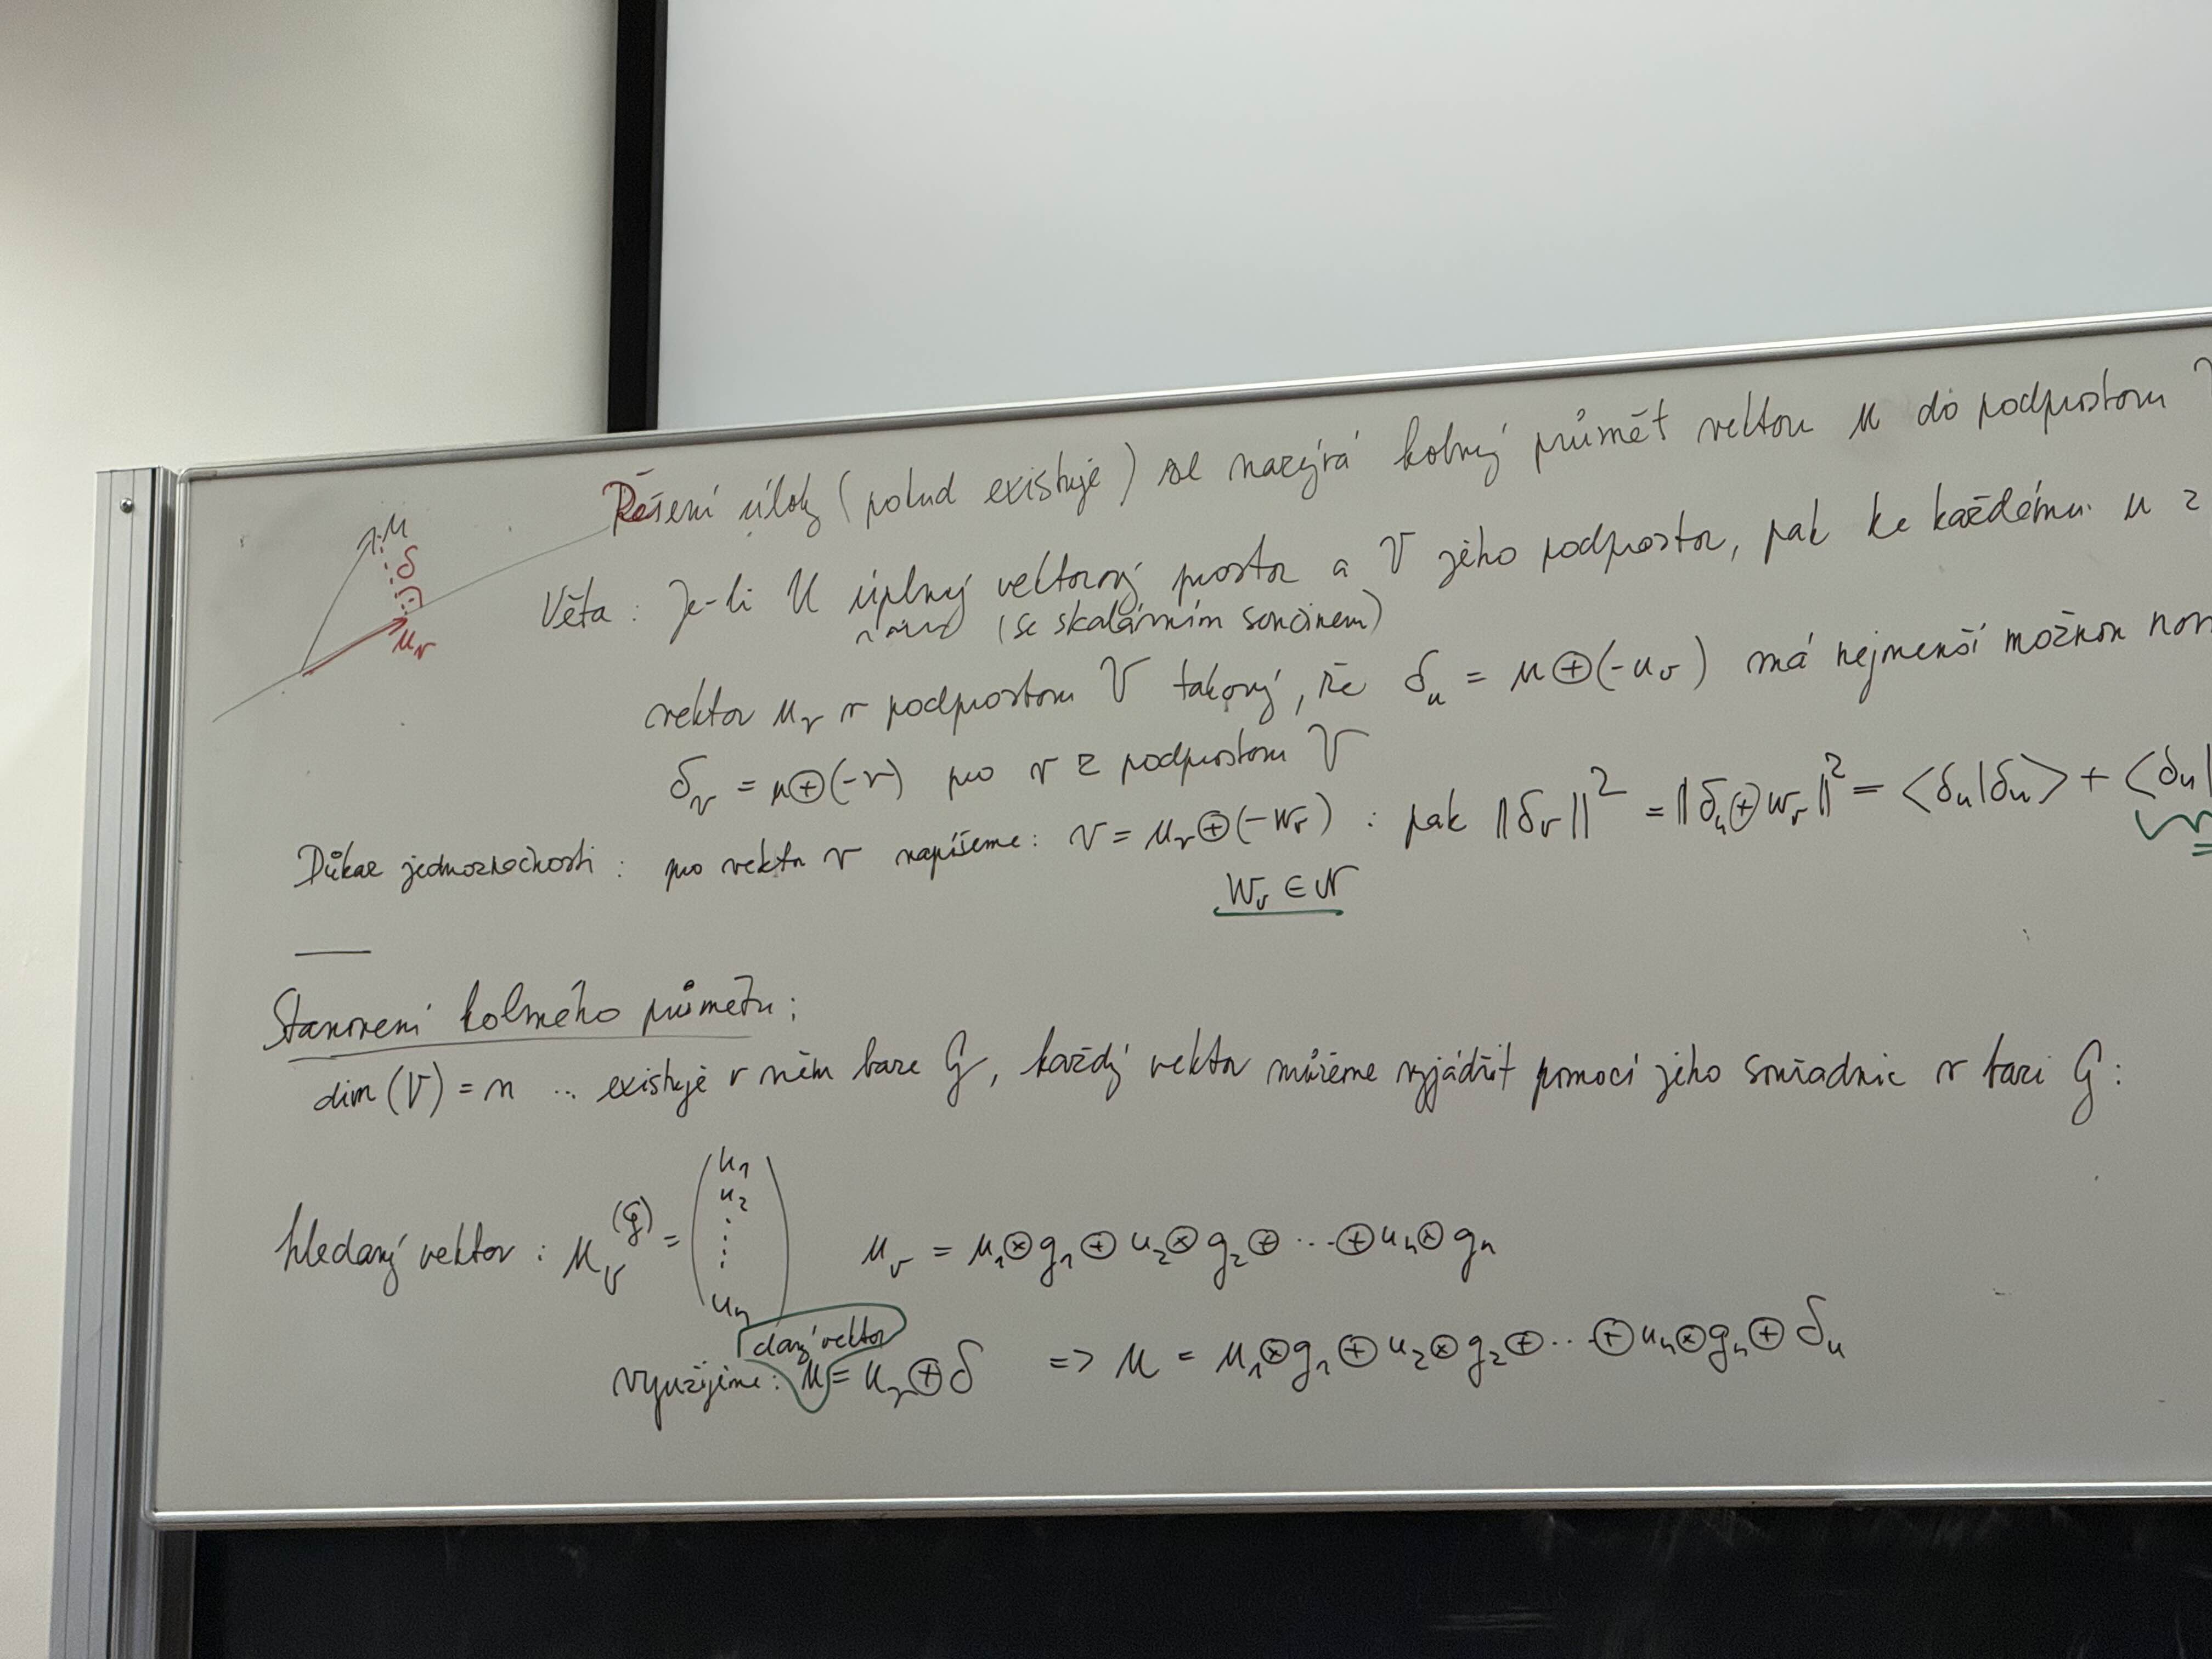 Řešení úlohy (pokud existuje) se nazývá kolmý průmět vektoru u do podprostoru
u
δ
u_v
Věta: Je-li U úplný vektorový prostor a V jeho podprostor, pak ke každému u z
(se skalárním součinem)
vektor u_v v podprostoru V takový, že δ_u = u⊕(-u_v) má nejmenší možnou nor
δ_v = u⊕(-v) pro v z podprostoru V
Důkaz jednoznačnosti: pro vektor v napíšeme: v = u_v⊕(-w_v) : pak ||δ_v||² = ||δ_u⊕w_v||² = <δ_u|δ_u> + <δ_u|
w_v ∈ V
Stanovení kolmého průmětu:
dim(V) = n ... existuje v něm baze G, každý vektor můžeme vyjádřit pomocí jeho souřadnic v bazi G:
hledaný vektor: u_v^(G) = (u_1 u_2 ⋮ u_n) u_v = u_1⊗g_1⊕u_2⊗g_2⊕...⊕u_n⊗g_n
daný vektor
využijeme: u = u_v⊕δ => u = u_1⊗g_1⊕u_2⊗g_2⊕...⊕u_n⊗g_n⊕δ_u